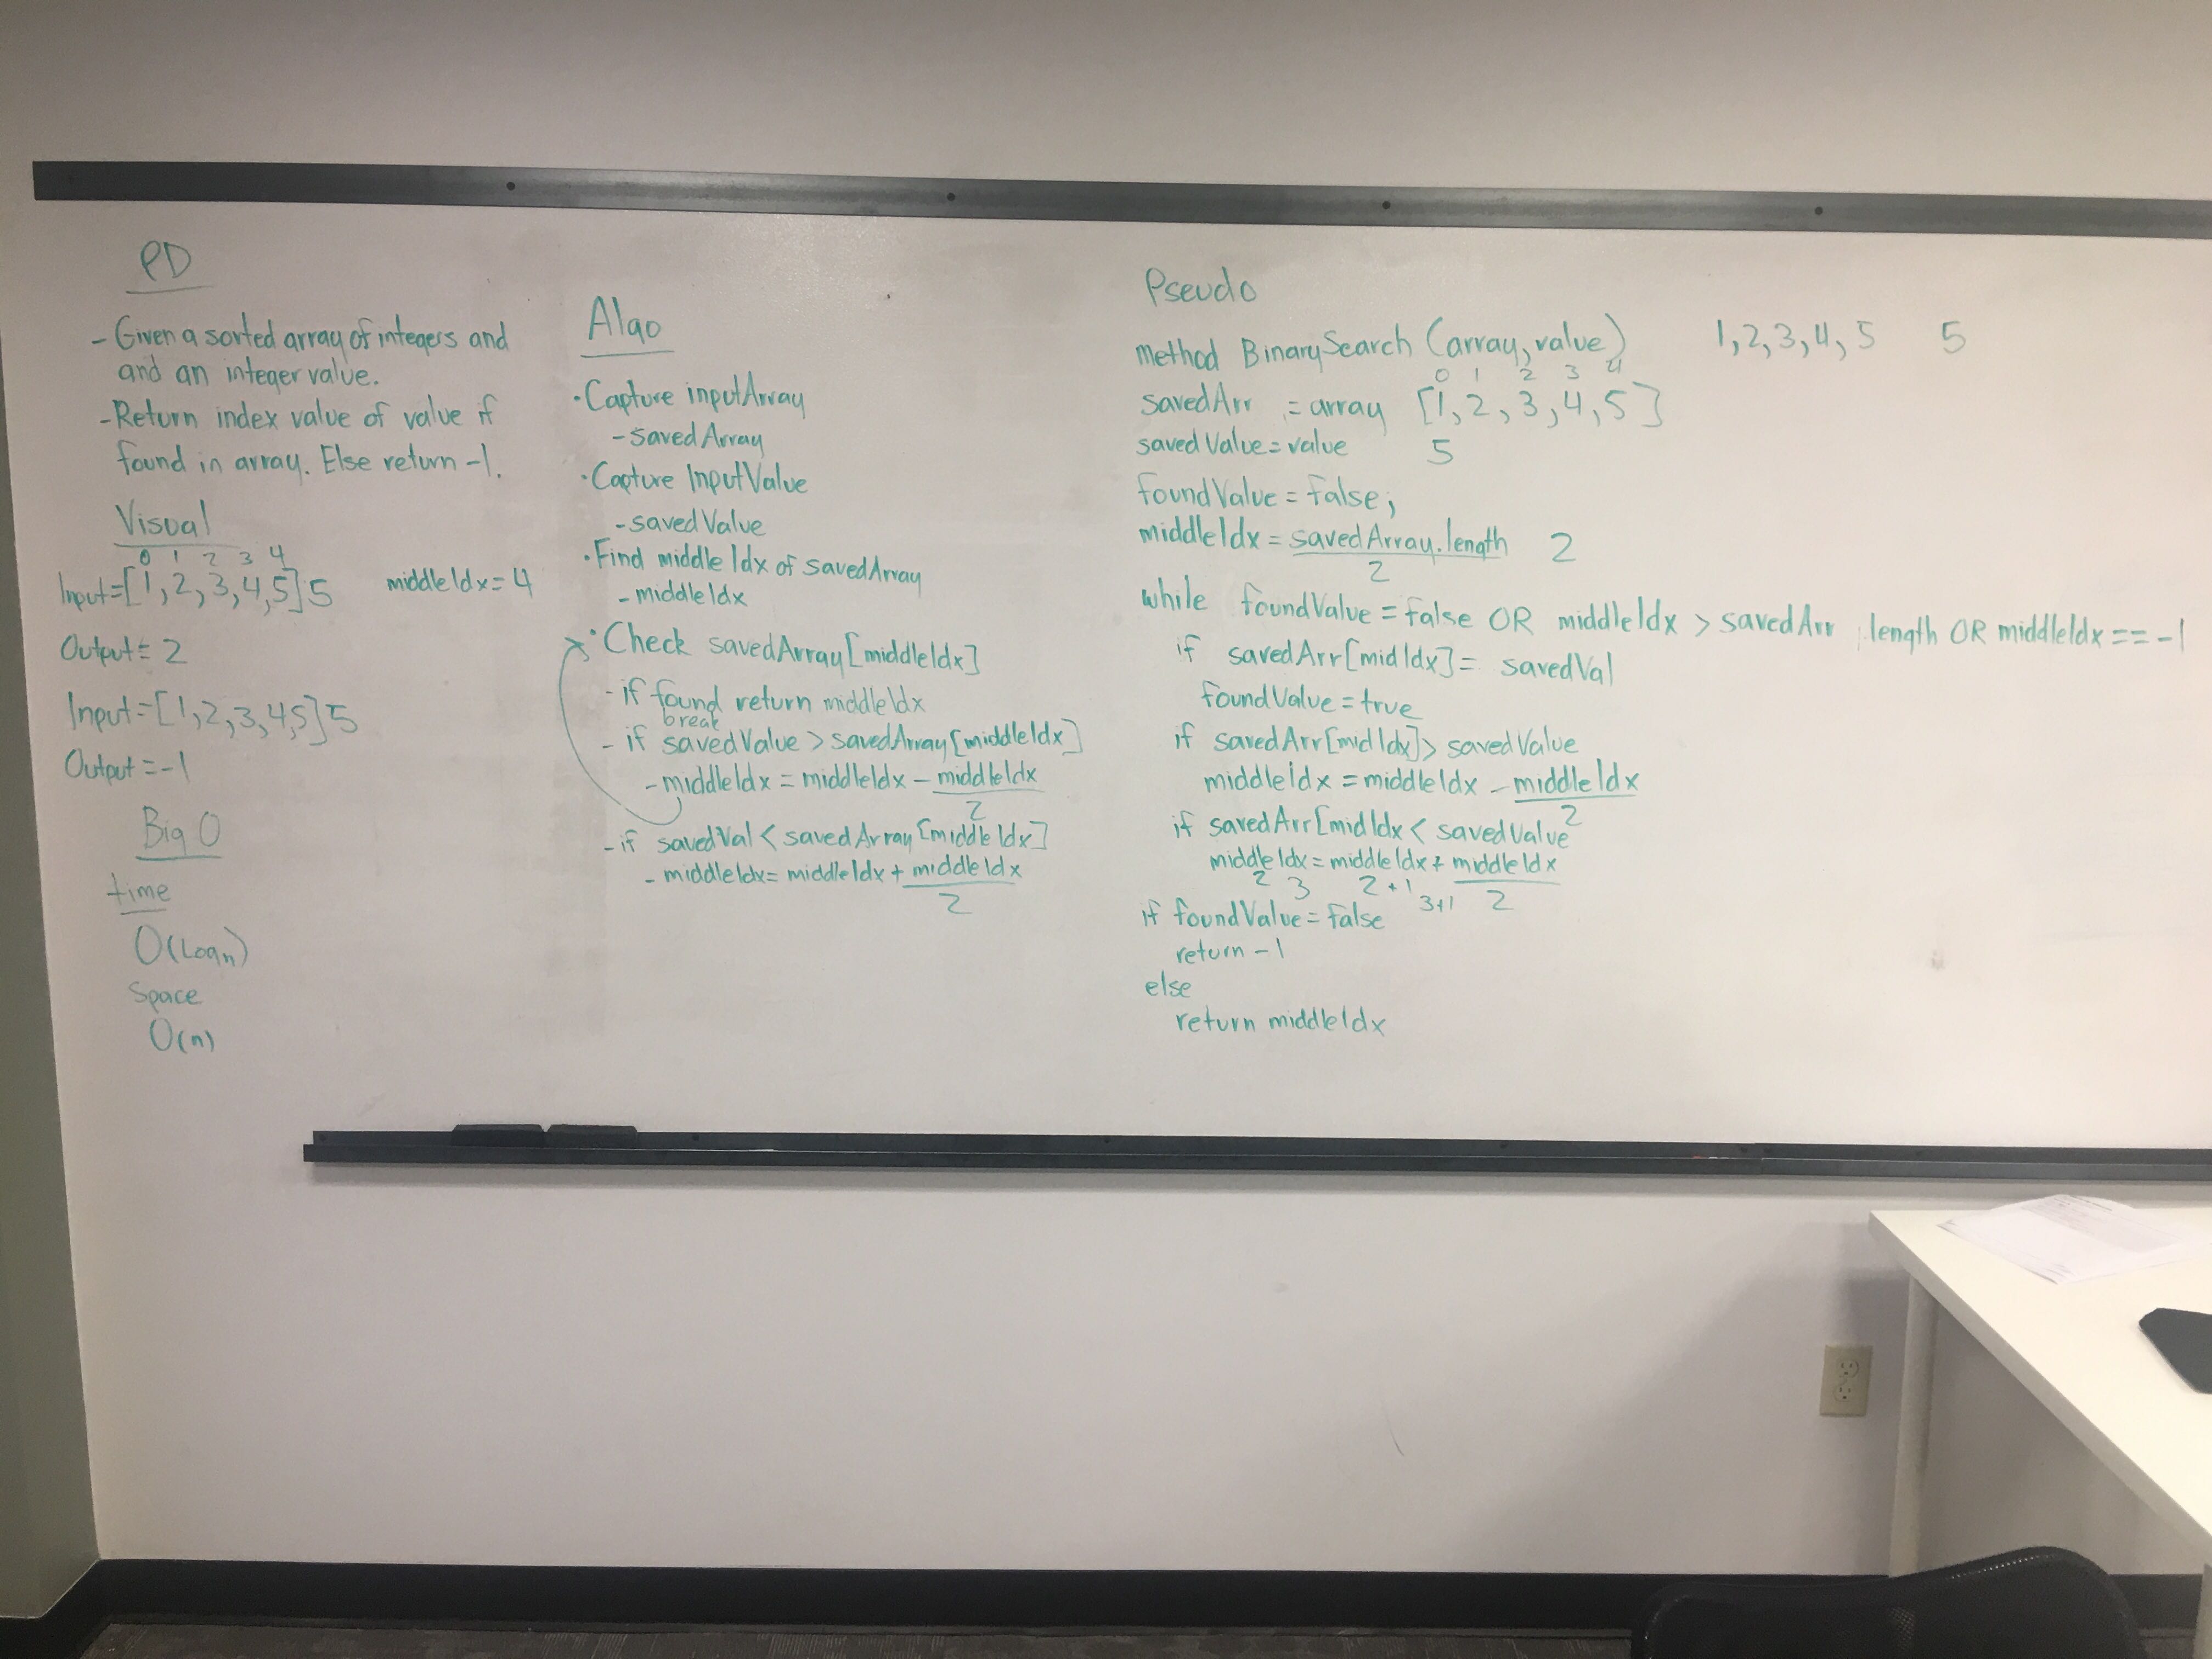 PD
- Given a sorted array of integers and
and an integer value.
- Return index value of value if
found in array. Else return -1.
Visual
0 1 2 3 4
Input=[1,2,3,4,5] 5 middleIdx = 4
Output = 2
Input=[1,2,3,4,5] 5
Output = -1
Big O
time
O(Log n)
Space
O(n)
Algo
· Capture inputArray
- savedArray
· Capture InputValue
- savedValue
· Find middle Idx of savedArray
- middleIdx
· Check savedArray[middleIdx]
- if found return middleIdx
break
- if savedValue > savedArray[middleIdx]
- middleIdx = middleIdx - middleIdx
2
- if savedVal < savedArray[middleIdx]
- middleIdx = middleIdx + middleIdx
2
Pseudo
method BinarySearch (array, value) 1,2,3,4,5 5
0 1 2 3 4
savedArr = array [1,2,3,4,5]
savedValue = value 5
foundValue = false;
middleIdx = savedArray.length 2
2
while foundValue = false OR middleIdx > savedArr .length OR middleIdx == -1
if savedArr[midIdx] = savedVal
foundValue = true
if savedArr[midIdx] > savedValue
middleIdx = middleIdx - middleIdx
2
if savedArr[midIdx < savedValue
middleIdx = middleIdx + middleIdx
2 3 2+1 3+1 2
if foundValue = false
return -1
else
return middleIdx